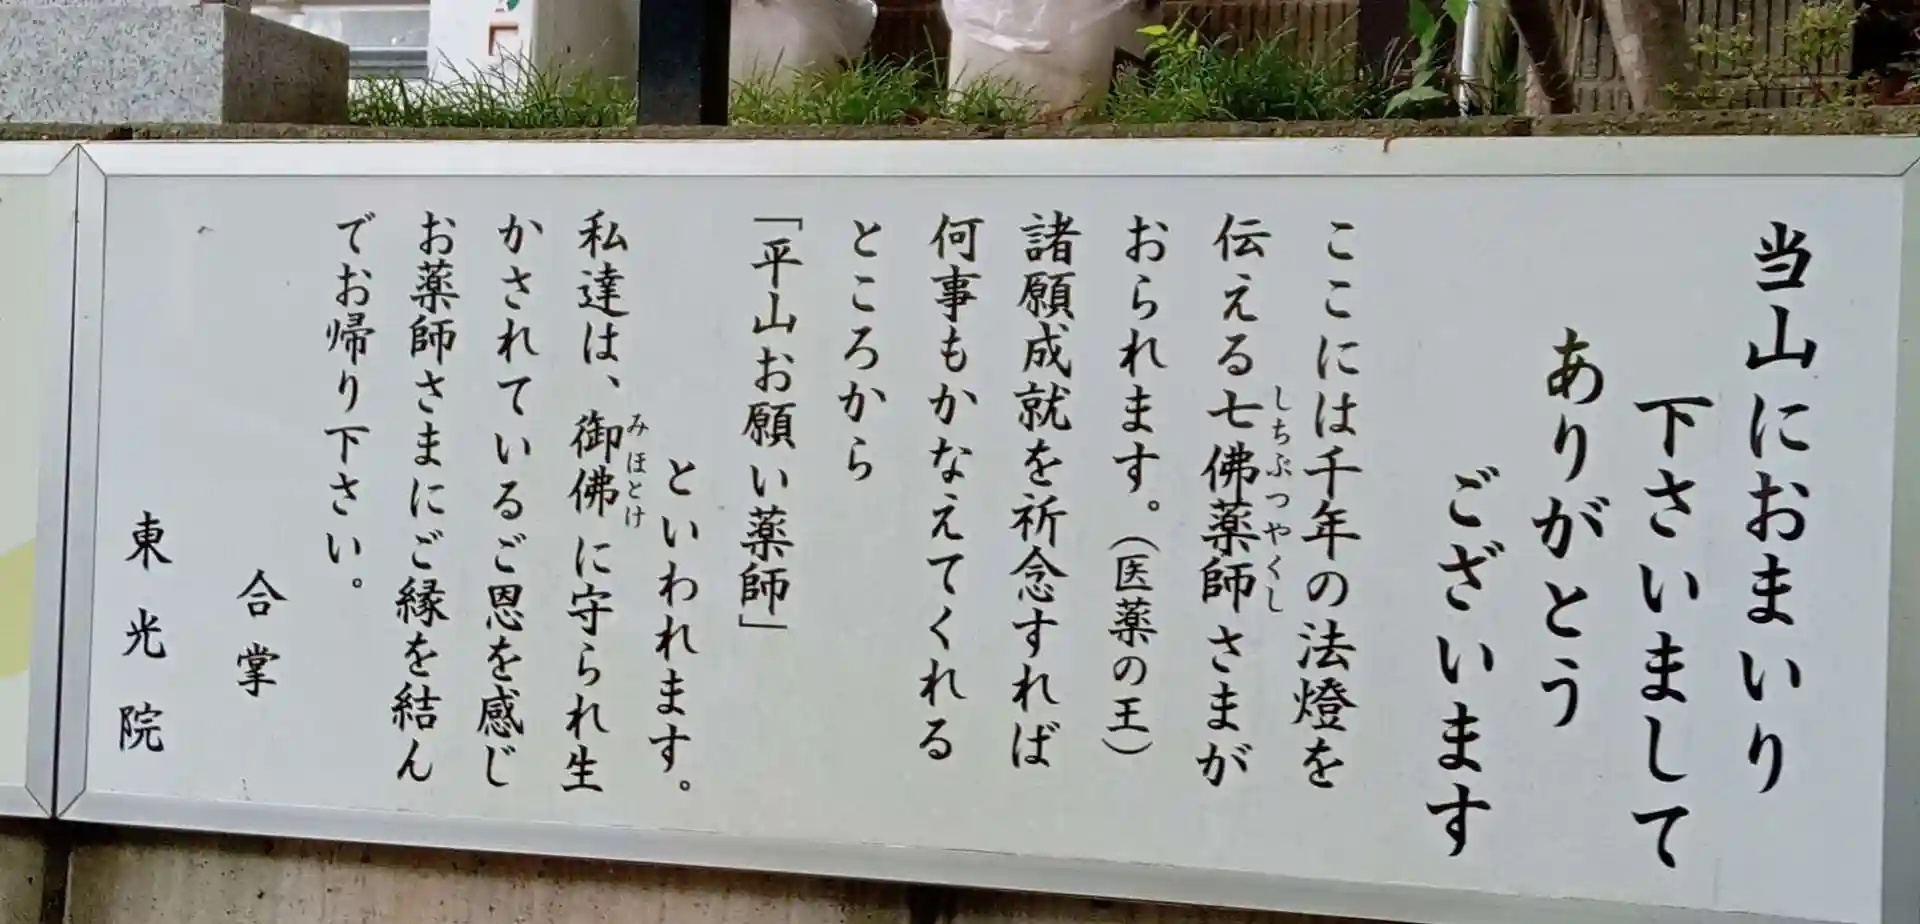 当山におまいり
下さいまして
ありがとう
ございます
ここには千年の法燈を
伝える七佛薬師さまが
しちぶつやくし
おられます。(医薬の王)
諸願成就を祈念すれば
何事もかなえてくれる
ところから
「平山お願い薬師」
といわれます。
私達は、御佛に守られ生
みほとけ
かされているご恩を感じ
お薬師さまにご縁を結ん
でお帰り下さい。
合掌
東光院